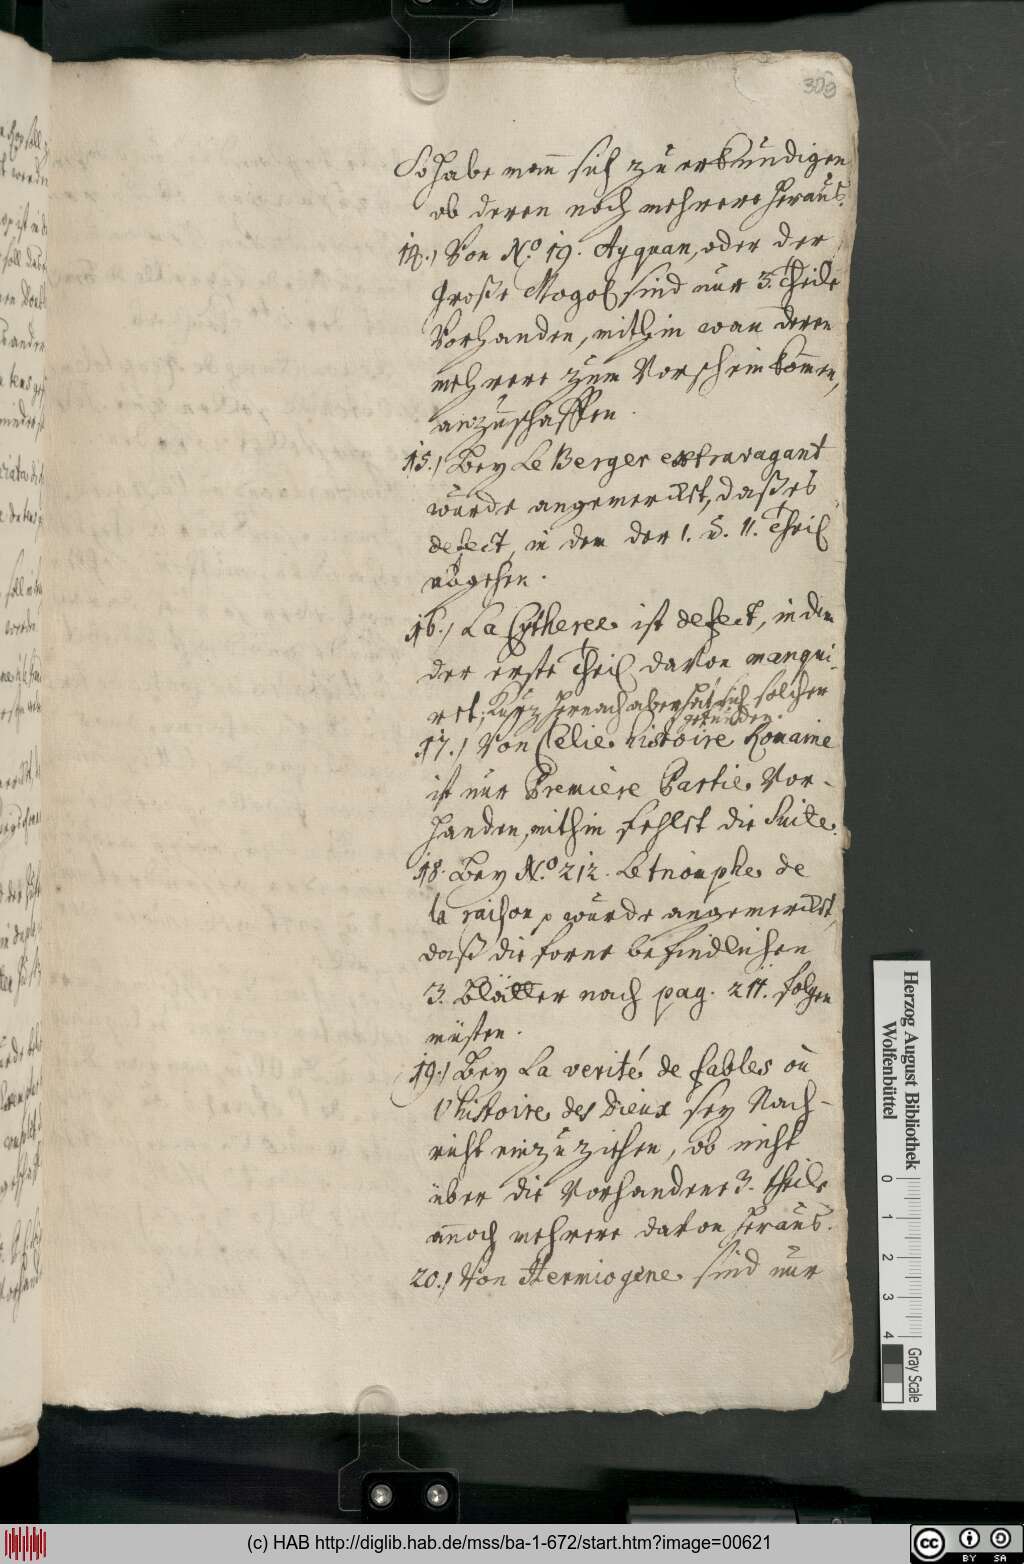 303
So habe man sich zu erkundigen
ob deren noch mehrere heraus.
14.) Von N.o 19. Ayquan, oder der
Große Mogol sind nur 3. Theile
Vorhanden, mithin wan̄ deren
mehrere zum Vorschein kom̄en,
anzuschaffen.
15.) Bey Le Berger extravagant
wurde angemerckt, daß es
defect, in dem der 1. u. 11. Theil
abgehen.
16.) La Cytherée ist defect, in dem
der erste Theil davon manqui-
ret; Kurz hernach aber hat sich solcher
gefunden.
17.) Von Celie histoire Romaine
ist nur Premiere Partie Vor-
handen, mithin fehlet die Suite.
18. Bey N.o 212. Le triomphe de
la raison p wurde angemerckt,
daß die forne befindlichen
3. Blätter nach pag. 24. folgen
müsten.
19.) Bey La verité de fables ou
l'histoire des Dieux sey Nach-
richt einzuziehen, ob nicht
über die Vorhandene 3. theile
an̄och mehrere davon heraus.
20.) Von Hermiogene sind nur
Herzog August Bibliothek
Wolfenbüttel
0 1 2 3 4
Gray Scale
(c) HAB http://diglib.hab.de/mss/ba-1-672/start.htm?image=00621
cc BY SA